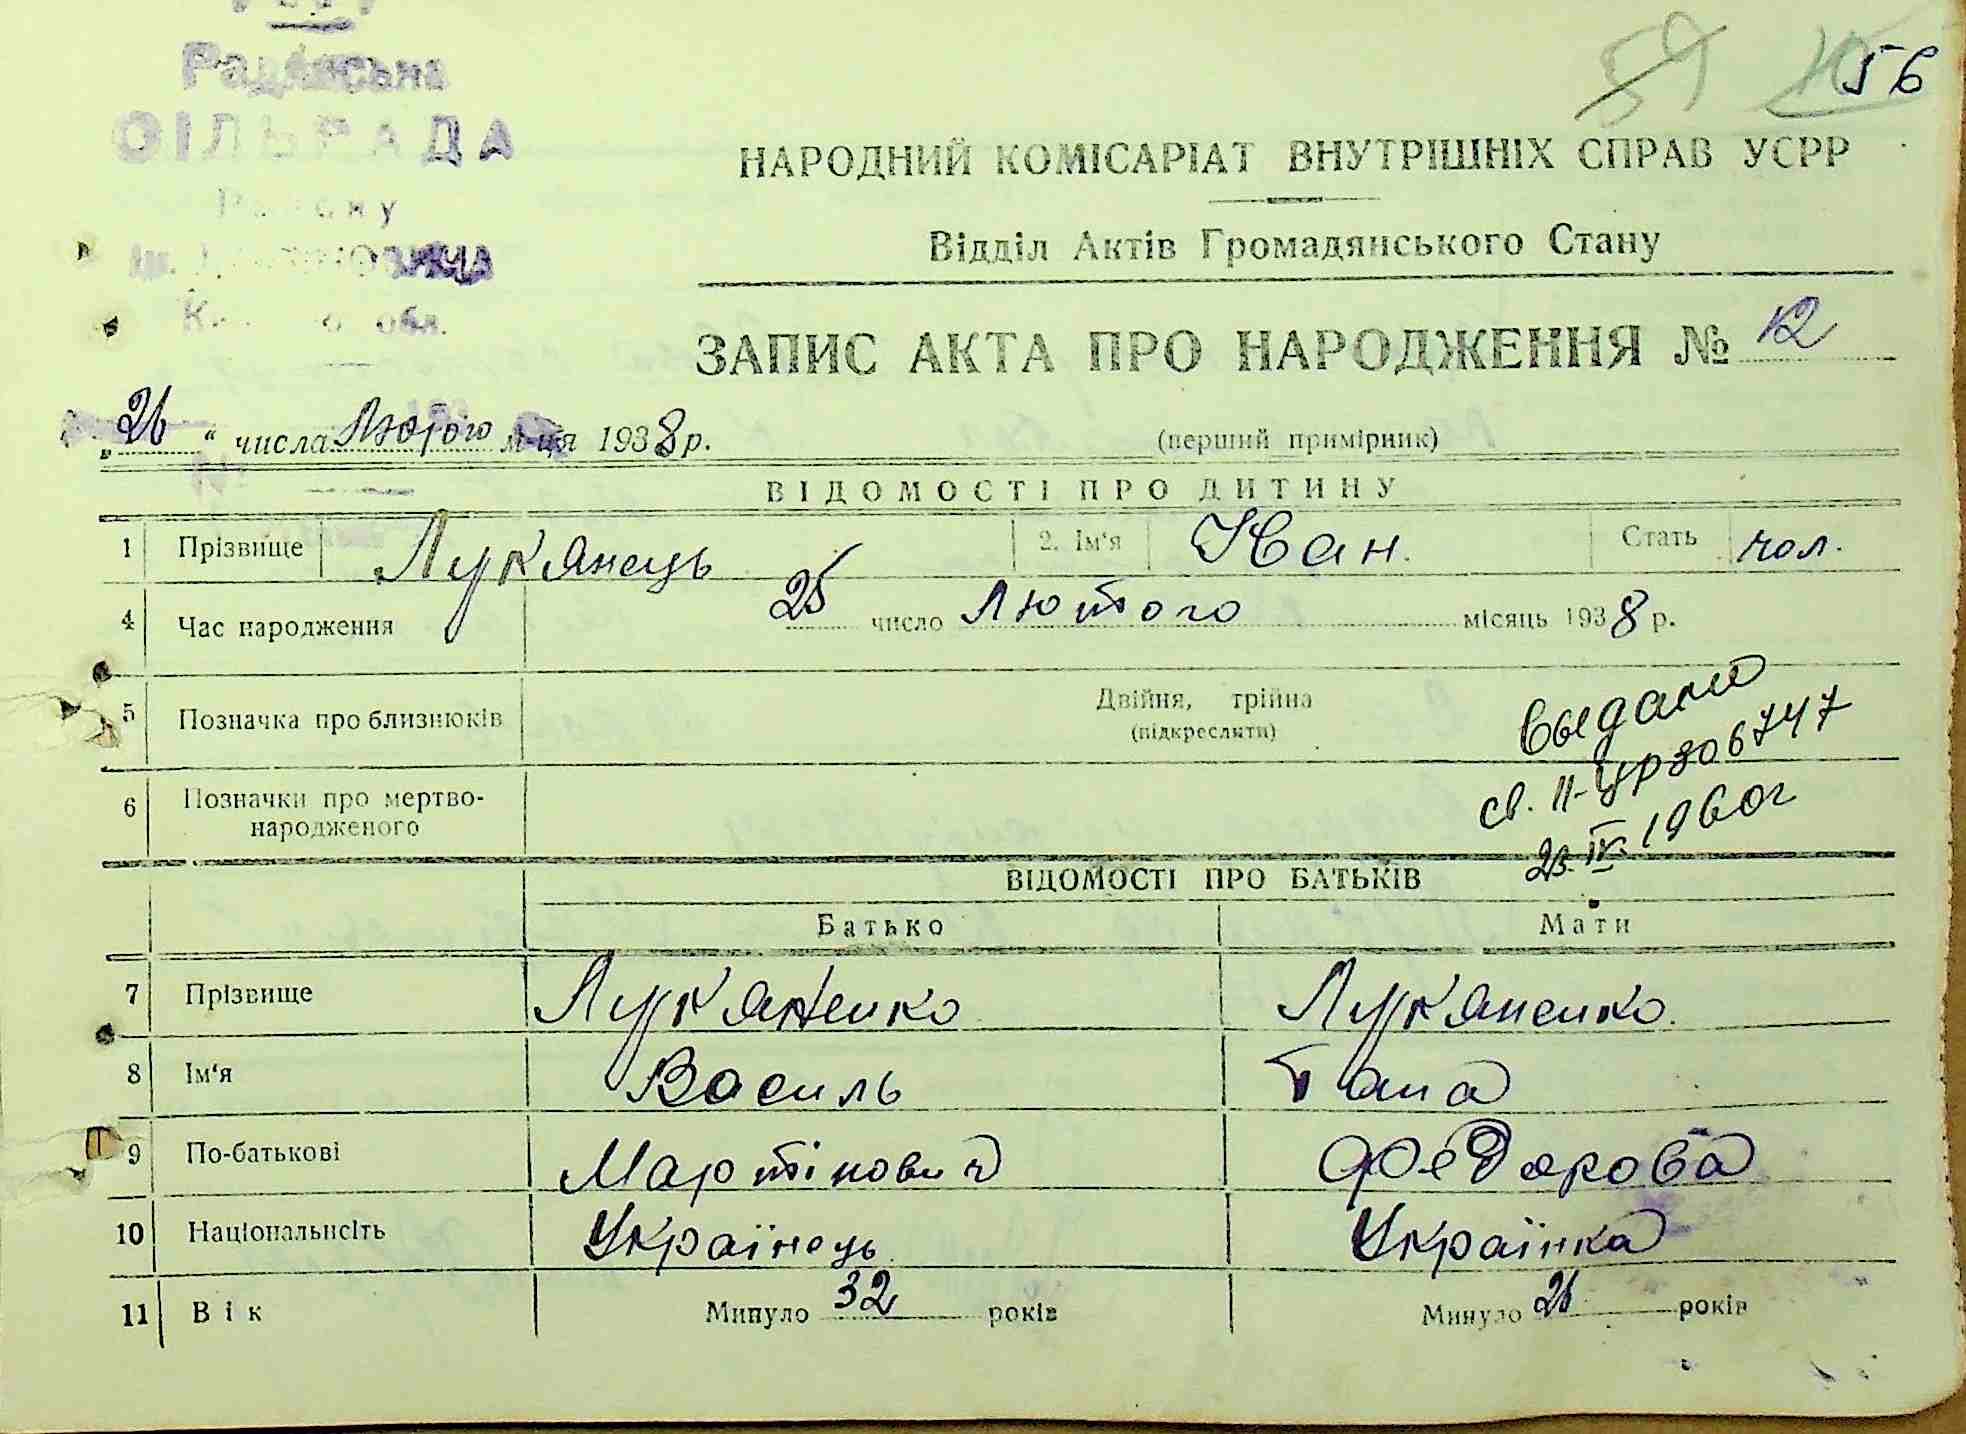 Радянська
СІЛЬРАДА
Району
обл.
59
56
НАРОДНИЙ КОМІСАРІАТ ВНУТРІШНІХ СПРАВ УСРР
Відділ Актів Громадянського Стану
ЗАПИС АКТА ПРО НАРОДЖЕННЯ № 12
„ 26 “ числа Лютого м-ця 1938 р. (перший примірник)
ВІДОМОСТІ ПРО ДИТИНУ
1 Прізвище Лукянець 2. Ім'я Іван. Стать чол.
4 Час народження 25 число Лютого місяць 1938 р.
5 Позначка про близнюків Двійня, трійна
(підкреслити)
выдано
св. II-УР 806747
23.IV.1960г
6 Позначки про мертво-
народженого
ВІДОМОСТІ ПРО БАТЬКІВ
Батько Мати
7 Прізвище Лукяненко Лукяненко.
8 Ім'я Василь
9 По-батькові Мартінович Федорова
10 Національнсіть Українець Українка
11 Вік Минуло 32 років Минуло 26 років